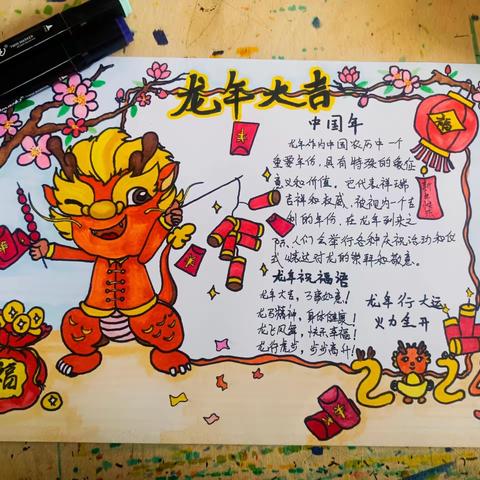 龙年大吉
中国年
龙年作为中国农历中一个
重要年份,具有特殊的象征
意义和价值。它代表祥瑞
吉祥和权威,被视为一个吉
利的年份,在龙年到来之
际,人们会举行各种庆祝活动和仪
式,以表达对龙的崇拜和敬意。
龙年祝福语
龙年大吉,万事如意!
龙马精神,身体健康!
龙飞凤舞,快乐幸福!
龙行虎步,步步高升!
龙年行大运
火力全开
福
福
2024